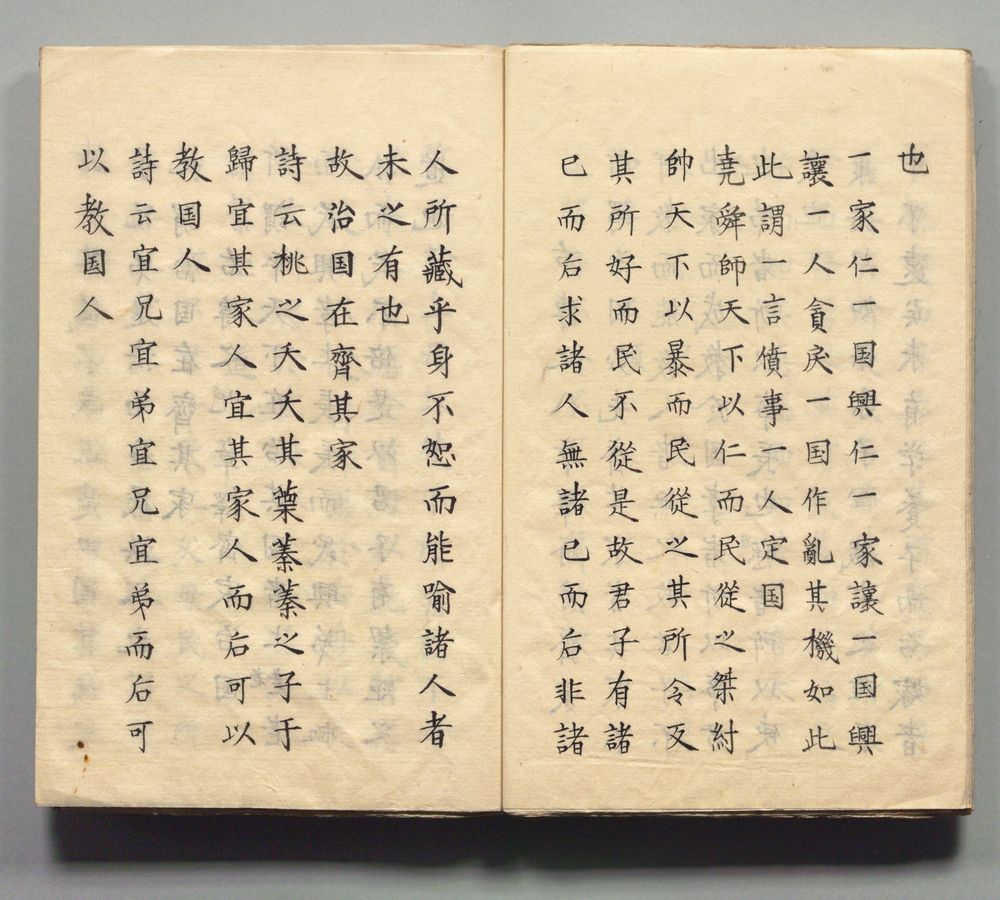 也
一家仁一国興仁一家讓一国興
讓一人貪戻一国作亂其機如此
此謂一言僨事一人定国
尭舜帥天下以仁而民從之桀紂
帥天下以暴而民從之其所令反
其所好而民不從是故君子有諸
已而后求諸人無諸已而后非諸
人所藏乎身不恕而能喻諸人者
未之有也
故治国在齊其家
詩云桃之夭夭其葉蓁蓁之子于
歸宜其家人宜其家人而后可以
教国人
詩云宜兄宜弟宜兄宜弟而后可
以教国人